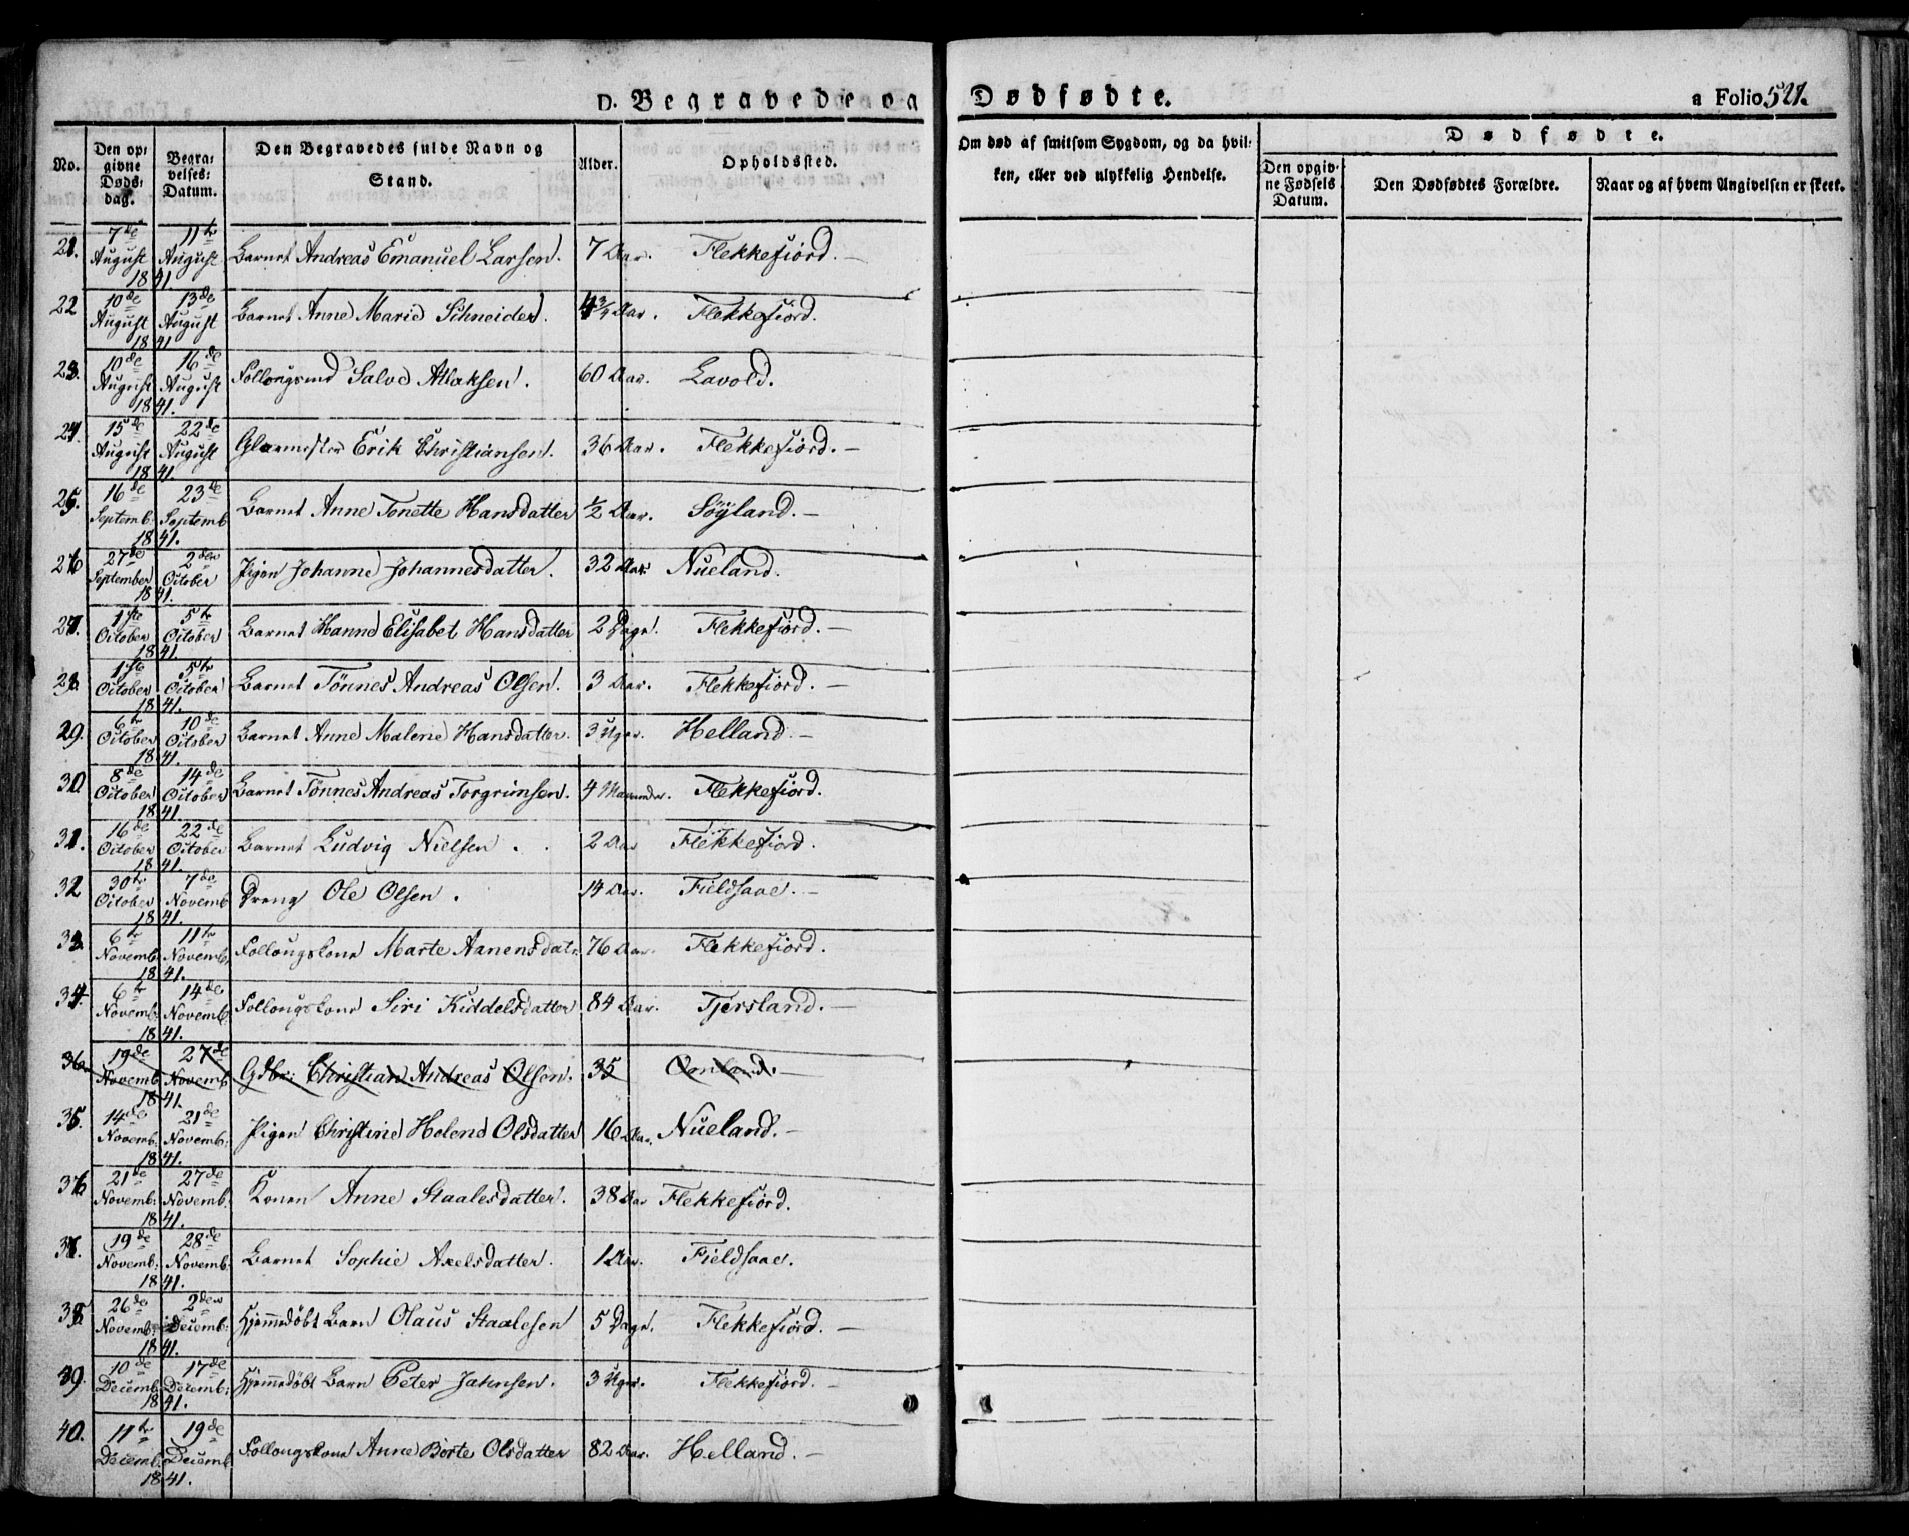 D. Begravede og Dødfødte. a Folio 521.
No. Den opgivne Døds-dag. Begravelses-Datum. Den Begravedes fulde Navn og Stand. Alder. Opholdssted. Om død af smitsom Sygdom, og da hvilken, eller ved ulykkelig Hendelse. Dødfødte. Den opgivne Fødsels Datum. Den Dødfødtes Forældre. Naar og af hvem Angivelsen er skeet.
21. 7de August 11te August 1841. Barnet Andreas Emanuel Larsen. 7 Aar. Flekkefiord. —
22 10de August 13de August 1841 Barnet Anne Marie Schneider. 4 3/4 Aar. Flekkefiord.
23. 10de August 16de August 1841. Follougsmd Salve Atlaksen. 60 Aar. Lavold.
24. 15de August 22de August 1841. Glarmester Erik Christiansen. 36 Aar. Flekkefiord. —
25. 16de Septemb: 23de Septemb 1841. Barnet Anne Tonette Hansdatter 1/2 Aar. Söyland. —
26 27de September 2den October 1841. Pigen Johanne Johannesdatter. 32 Aar. Nueland.
27. 1ste October 5te October 1841. Barnet Hanne Elisabet Hansdatter 2 Dage. Flekkefiord. —
28. 1ste October 5te October 1841. Barnet Tönnes Andreas Olsen. 3 Aar. Flekkefiord. —
29. 6te October 10de October 1841. Barnet Anne Malene Hansdatter. 3 Uger. Helland. —
30. 8de October 14de October 1841. Barnet Tönnes Andreas Torgrimsen. 4 Maaneder. Flekkefiord.
31. 16de October 22de October 1841. Barnet Ludvig Nielsen. 2 Aar Flekkefiord.
32 30te October 7de Novemb 1841. Dreng Ole Olsen. 14 Aar. Fieldsaae. —
33. 6te Novemb: 11te Novemb: 1841. Follougskone Marte Aanensdatr. 76 Aar. Flekkefiord.
34. 6te Novemb: 14de Novemb: 1841. Follougskone Siri Kiddelsdatter 84 Aar. Tjersland. —
36. 19de Novemb 27de Novemb 1841. Gdbr: Christian Andreas Olsen. 35 —
35. 14de Novemb: 21de Novemb: 1841. Pigen Christine Helene Olsdatter 16 Aar. Nueland. —
36 21de Novemb: 27de Novemb: 1841. Konen Anne Staalesdatter. 38 Aar Flekkefiord.
37. 19de Novemb: 28de Novemb: 1841. Barnet Sophie Axelsdatter. 1 Aar. Fieldsaae.
38. 26de Novemb: 2den Decemb: 1841. Hjemmedöbt Barn Olaus Staalesen 5 Dage. Flekkefiord. —
39. 10de Decemb: 17de Decemb: 1841. Hjemmedöbt Barn Peter Jahnsen. 3 Uger. Flekkefiord. —
40. 11te Decemb: 19de Decemb 1841. Follougskone Anne Börte Olsdatter 82 Aar. Helland. —